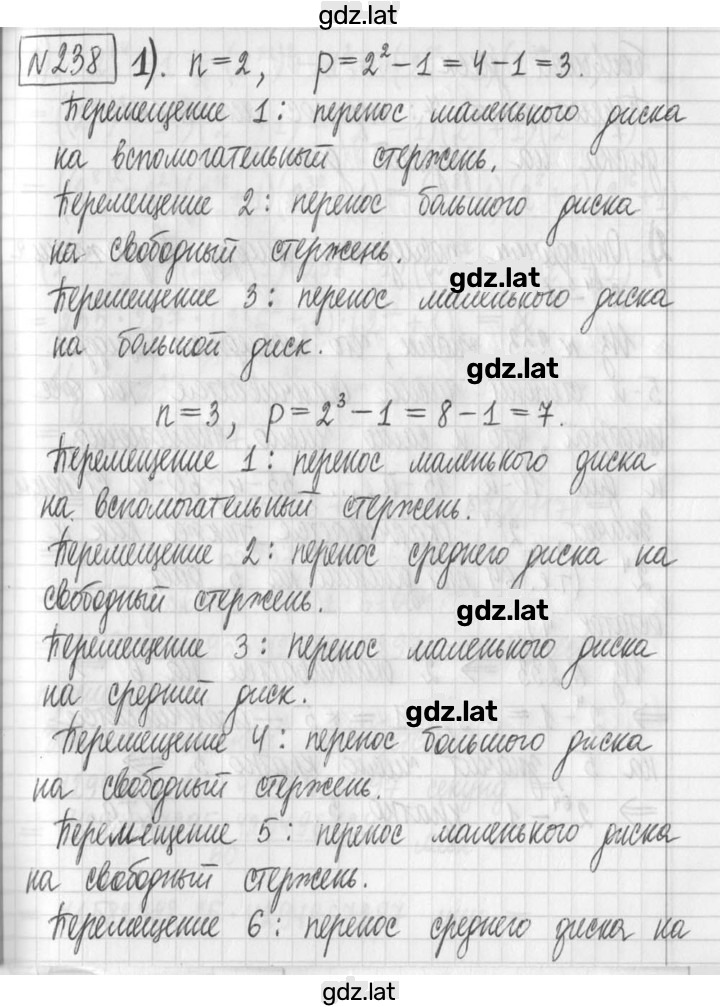 gdz.lat
№238 1). n=2, p=2²-1=4-1=3.
Перемещение 1: перенос маленького диска
на вспомогательный стержень.
Перемещение 2: перенос большого диска
на свободный стержень.
gdz.lat
Перемещение 3: перенос маленького диска
на большой диск.
gdz.lat
n=3, p=2³-1=8-1=7.
Перемещение 1: перенос маленького диска
на вспомогательный стержень.
Перемещение 2: перенос среднего диска на
свободный стержень.
gdz.lat
Перемещение 3: перенос маленького диска
на средний диск.
gdz.lat
Перемещение 4: перенос большого диска
на свободный стержень.
Перемещение 5: перенос маленького диска
на свободный стержень.
Перемещение 6: перенос среднего диска на
gdz.lat